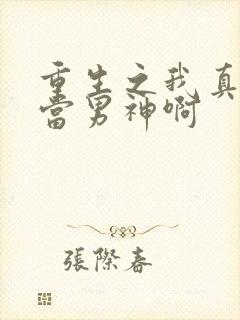 重生之我真
当男神啊
張際春